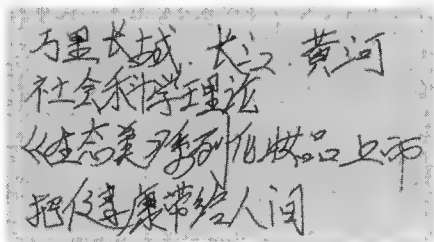 万里长城、长江、黄河
社会科学理论
《生态美》系列化妆品上市
把健康带给人间